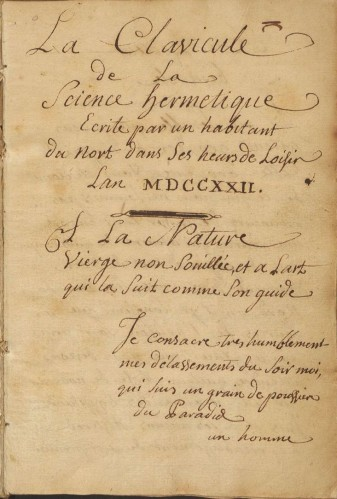 La Clavicule
de La
Science hermetique
Ecrite par un habitant
du Nort dans Ses heurs de Loisir
Lan MDCCXXII.
La Nature
Vierge non Souillée, et a Lart
qui la Suit comme Son guide
Je consacre tres humblement
mes délassements du Soir moi,
qui suis un grain de poussier
du Paradie
un homme